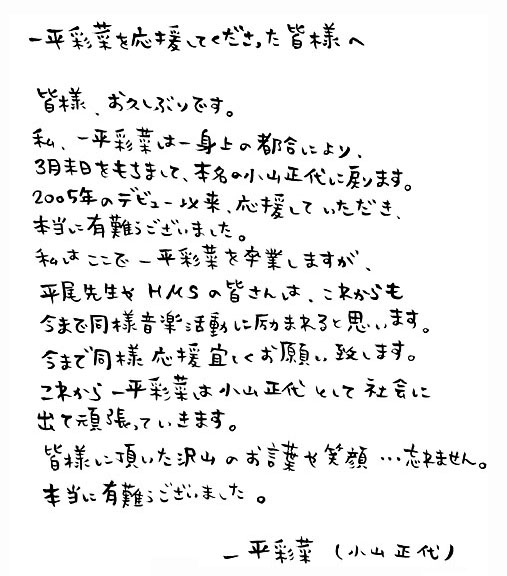 一平彩菜を応援してくださった皆様へ
皆様、お久しぶりです。
私、一平彩菜は一身上の都合により、
3月末日をもちまして、本名の小山正代に戻ります。
2005年のデビュー以来、応援していただき、
本当に有難うございました。
私はここで一平彩菜を卒業しますが、
平尾先生やHMSの皆さんは、これからも
今まで同様音楽活動に励まれると思います。
今まで同様応援宜しくお願い致します。
これから一平彩菜は小山正代として社会に
出て頑張っていきます。
皆様に頂いた沢山のお言葉や笑顔…忘れません。
本当に有難うございました。
一平彩菜（小山正代）